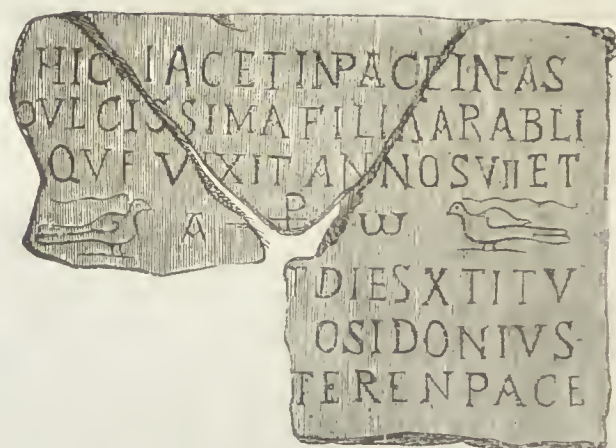 HIC IACET IN PACE INFAS
DVLCISSIMA FILIA ARABLI
QVE VIXIT ANNOS VII ET
A ⳨ ω
DIES X TITV
O SIDONIVS
TER EN PACE